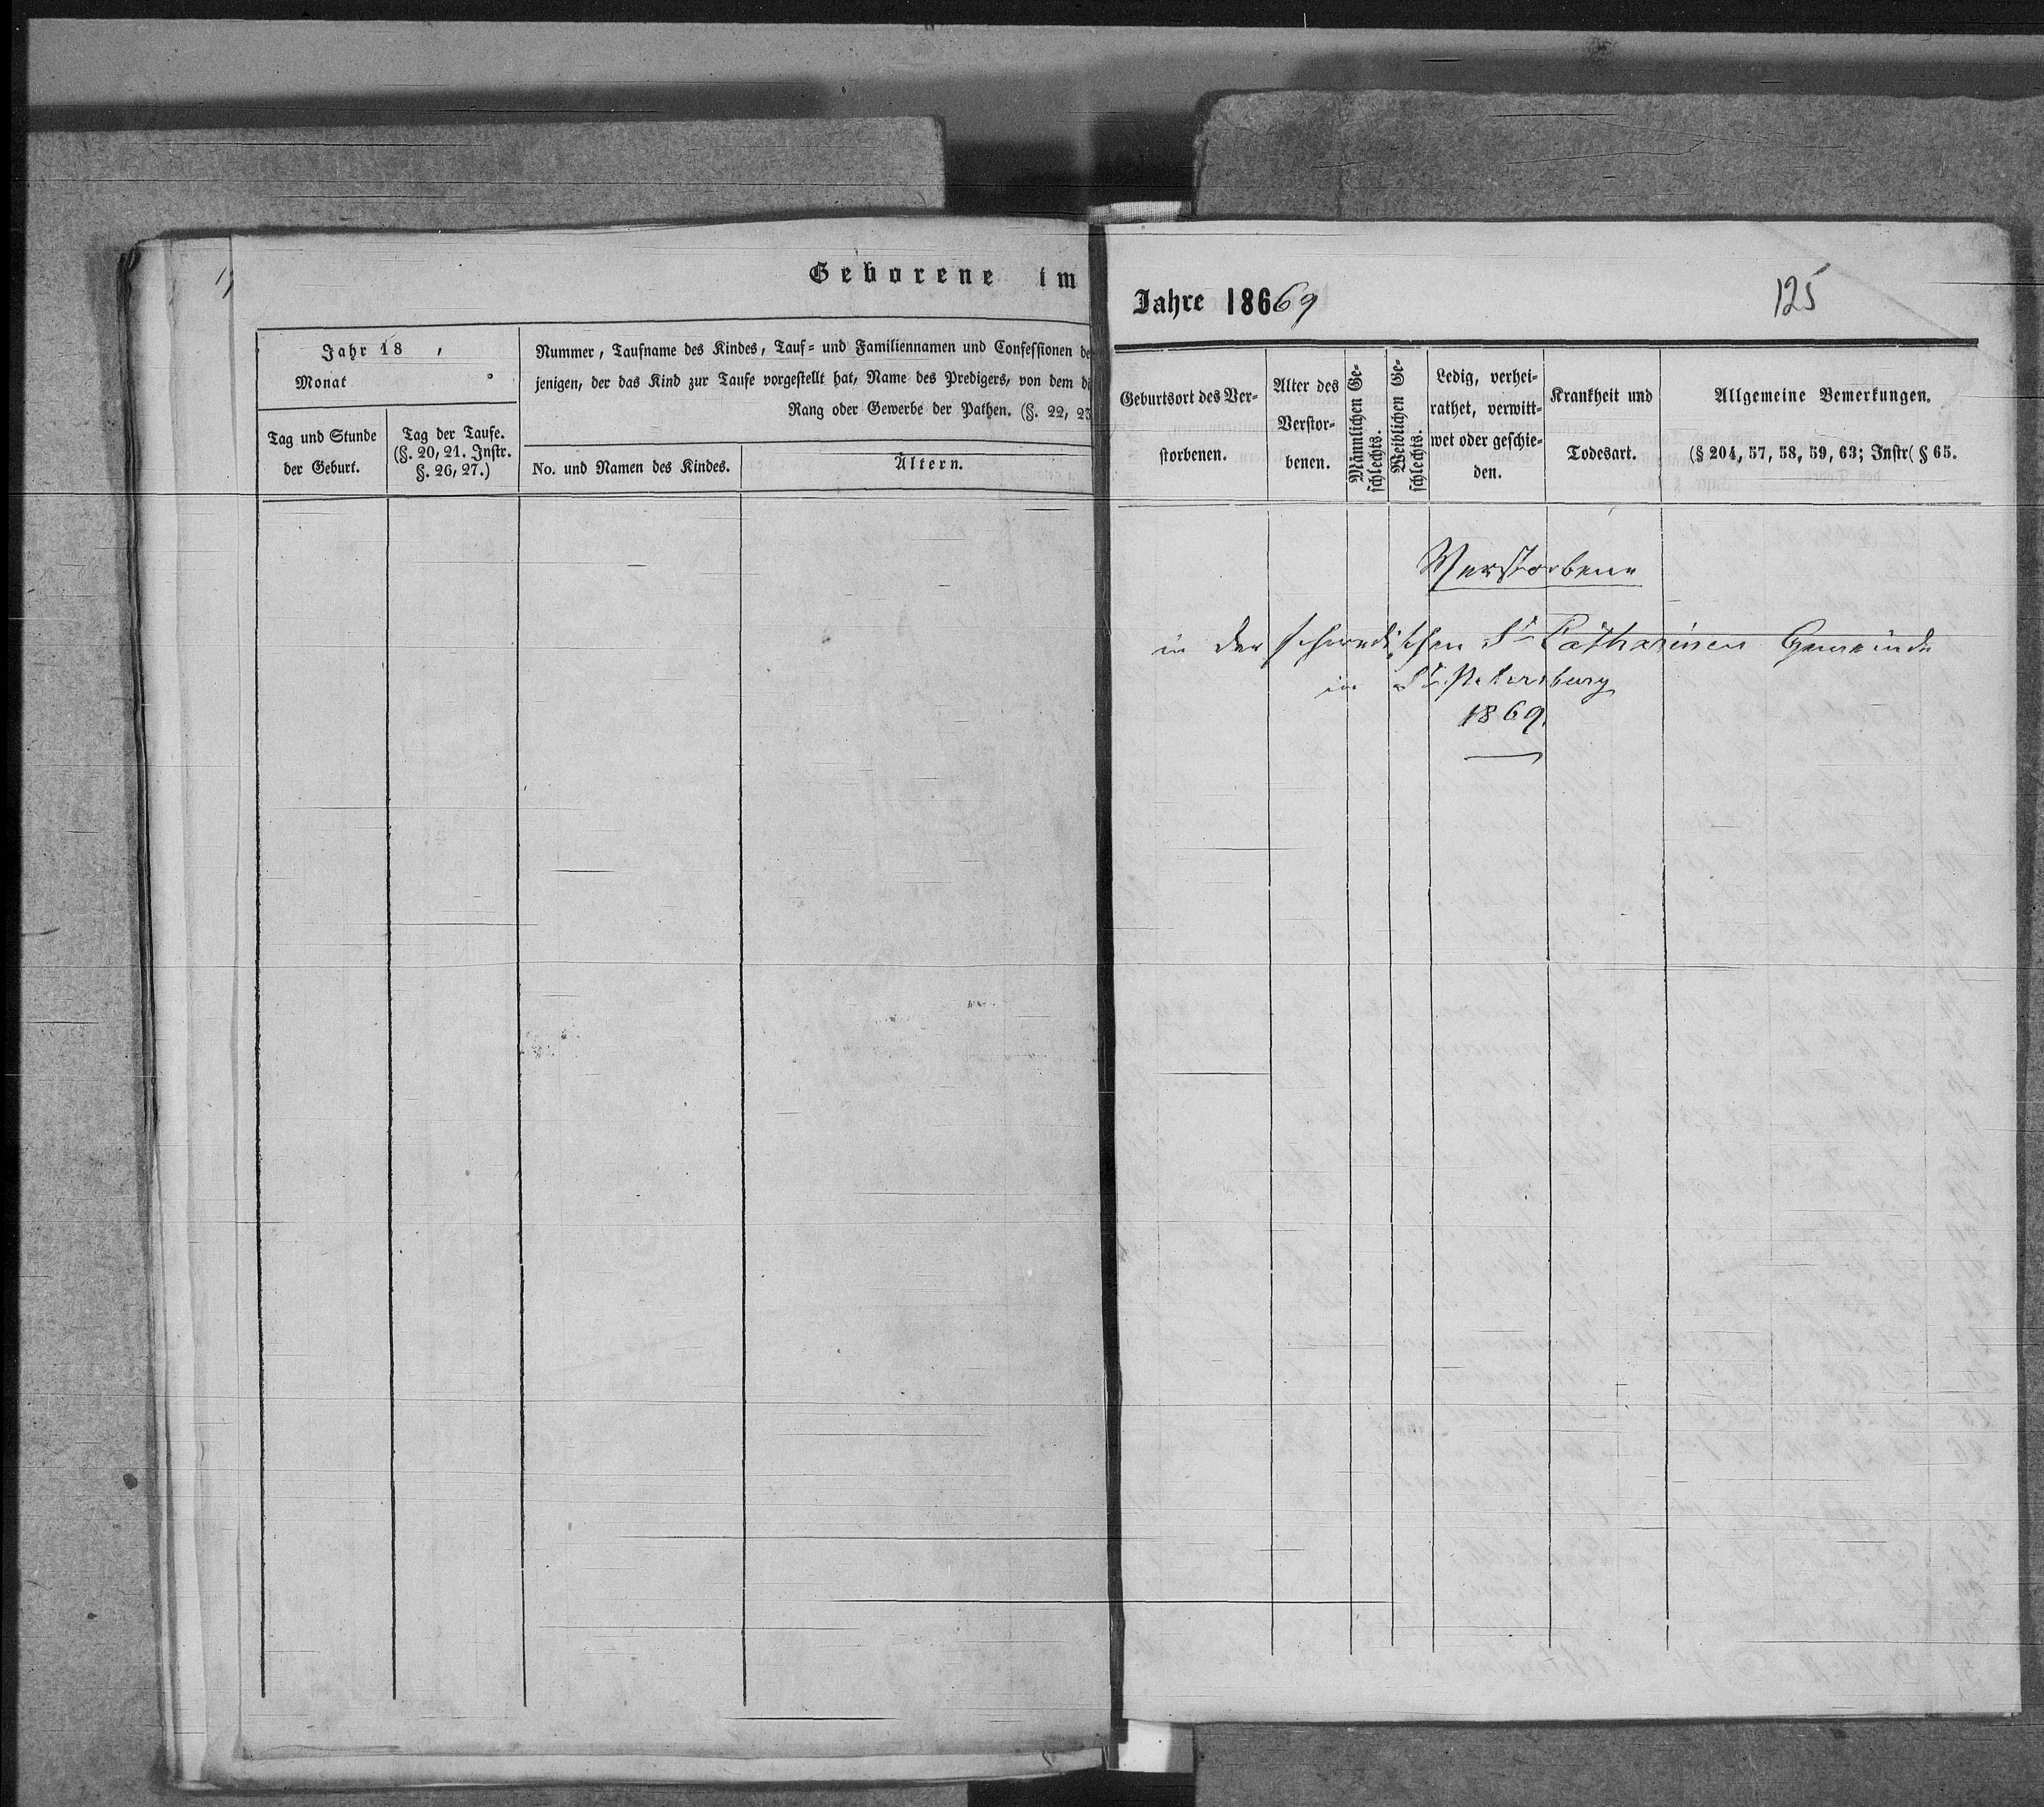 Geborene im
Jahr 18 ,
Monat
Tag und Stunde
der Geburt.
Tag der Taufe.
(§. 20, 21. Instr.
§. 26, 27.)
Nummer, Taufname des Kindes, Tauf- und Familiennamen und Confessionen de
jenigen, der das Kind zur Taufe vorgestellt hat, Name des Predigers, von dem di
Rang oder Gewerbe der Pathen. (§. 22, 23
No. und Namen des Kindes.
Ältern.
Jahre 18669
125
Geburtsort des Ver-
storbenen.
Alter des
Verstor-
benen.
Männlichen Ge-
schlechts.
Weiblichen Ge-
schlechts.
Ledig, verhei-
rathet, verwitt-
wet oder geschie-
den.
Krankheit und
Todesart.
Allgemeine Bemerkungen.
(§ 204, 57, 58, 59, 63; Instr( § 65.
Verstorbene
in der schwedischen St Catharinen Gemeinde
in St. Petersburg
1869.